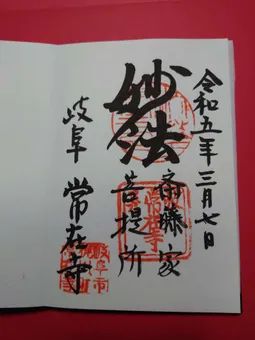 令和五年三月七日
斎藤家
妙法
菩提所
岐阜 常在寺
常在寺
岐阜市